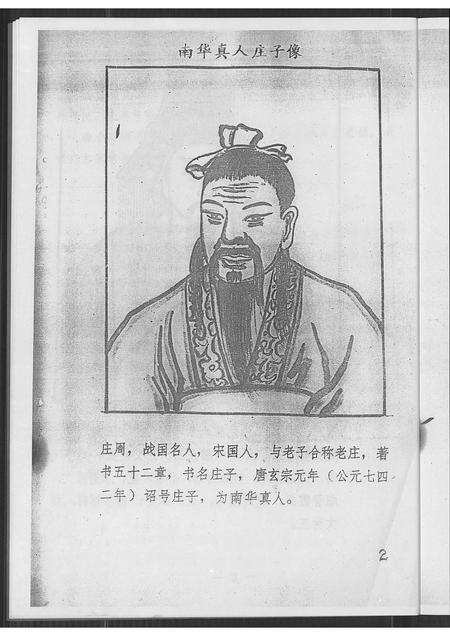 南华真人庄子像
庄周，战国名人，宋国人，与老子合称老庄，著
书五十二章，书名庄子，唐玄宗元年（公元七四
二年）诏号庄子，为南华真人。
2